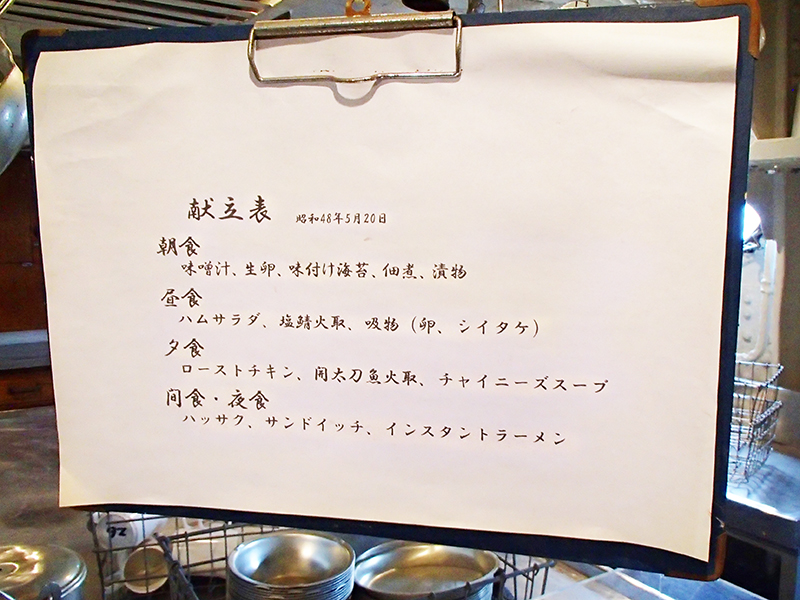 献立表 昭和48年5月20日
朝食
味噌汁、生卵、味付け海苔、佃煮、漬物
昼食
ハムサラダ、塩鯖火取、吸物（卵、シイタケ）
夕食
ローストチキン、開太刀魚火取、チャイニーズスープ
间食・夜食
ハッサク、サンドイッチ、インスタントラーメン